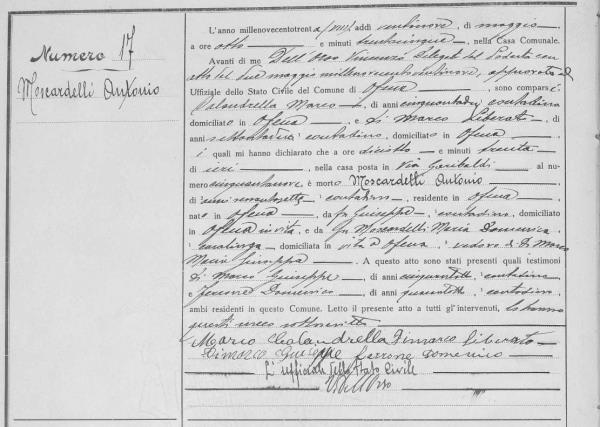 Numero 17
Moscardelli Antonio
L'anno millenovecentotrent addì ventinove, di maggio
a ore otto e minuti trentacinque, nella Casa Comunale.
Avanti di me Dell'Orso Vincenzo Delegato del Podestà con
atto del due maggio millenovecentoventinove, approvato
Uffiziale dello Stato Civile del Comune di Ofena, sono comparsi
Calandrella Marco, di anni cinquantadue contadino
domiciliato in Ofena e Di Marco Liberato, di
anni settanta, contadino, domiciliato in Ofena
i quali mi hanno dichiarato che a ore diciotto e minuti trenta
di ieri, nella casa posta in Via Garibaldi al nu-
mero cinquantanove, è morto Moscardelli Antonio
di anni, contadino, residente in Ofena
nato in Ofena, da fu Giuseppe, contadino, domiciliato
in Ofena in vita, e da fu Moscardelli Maria Domenica
casalinga, domiciliata in vita a Ofena, vedovo di Di Marco
Maria Giuseppa. A questo atto sono stati presenti quali testimoni
Di Marco Giuseppe, di anni, contadino
e Ferrone Domenico, di anni quarantotto, contadino
ambi residenti in questo Comune. Letto il presente atto a tutti gl'intervenuti, lo hanno
questi meco sottoscritto
Marco Calandrella Dimarco Liberato
Dimarco Giuseppe Ferrone Domenico
L'ufficiale dello Stato Civile